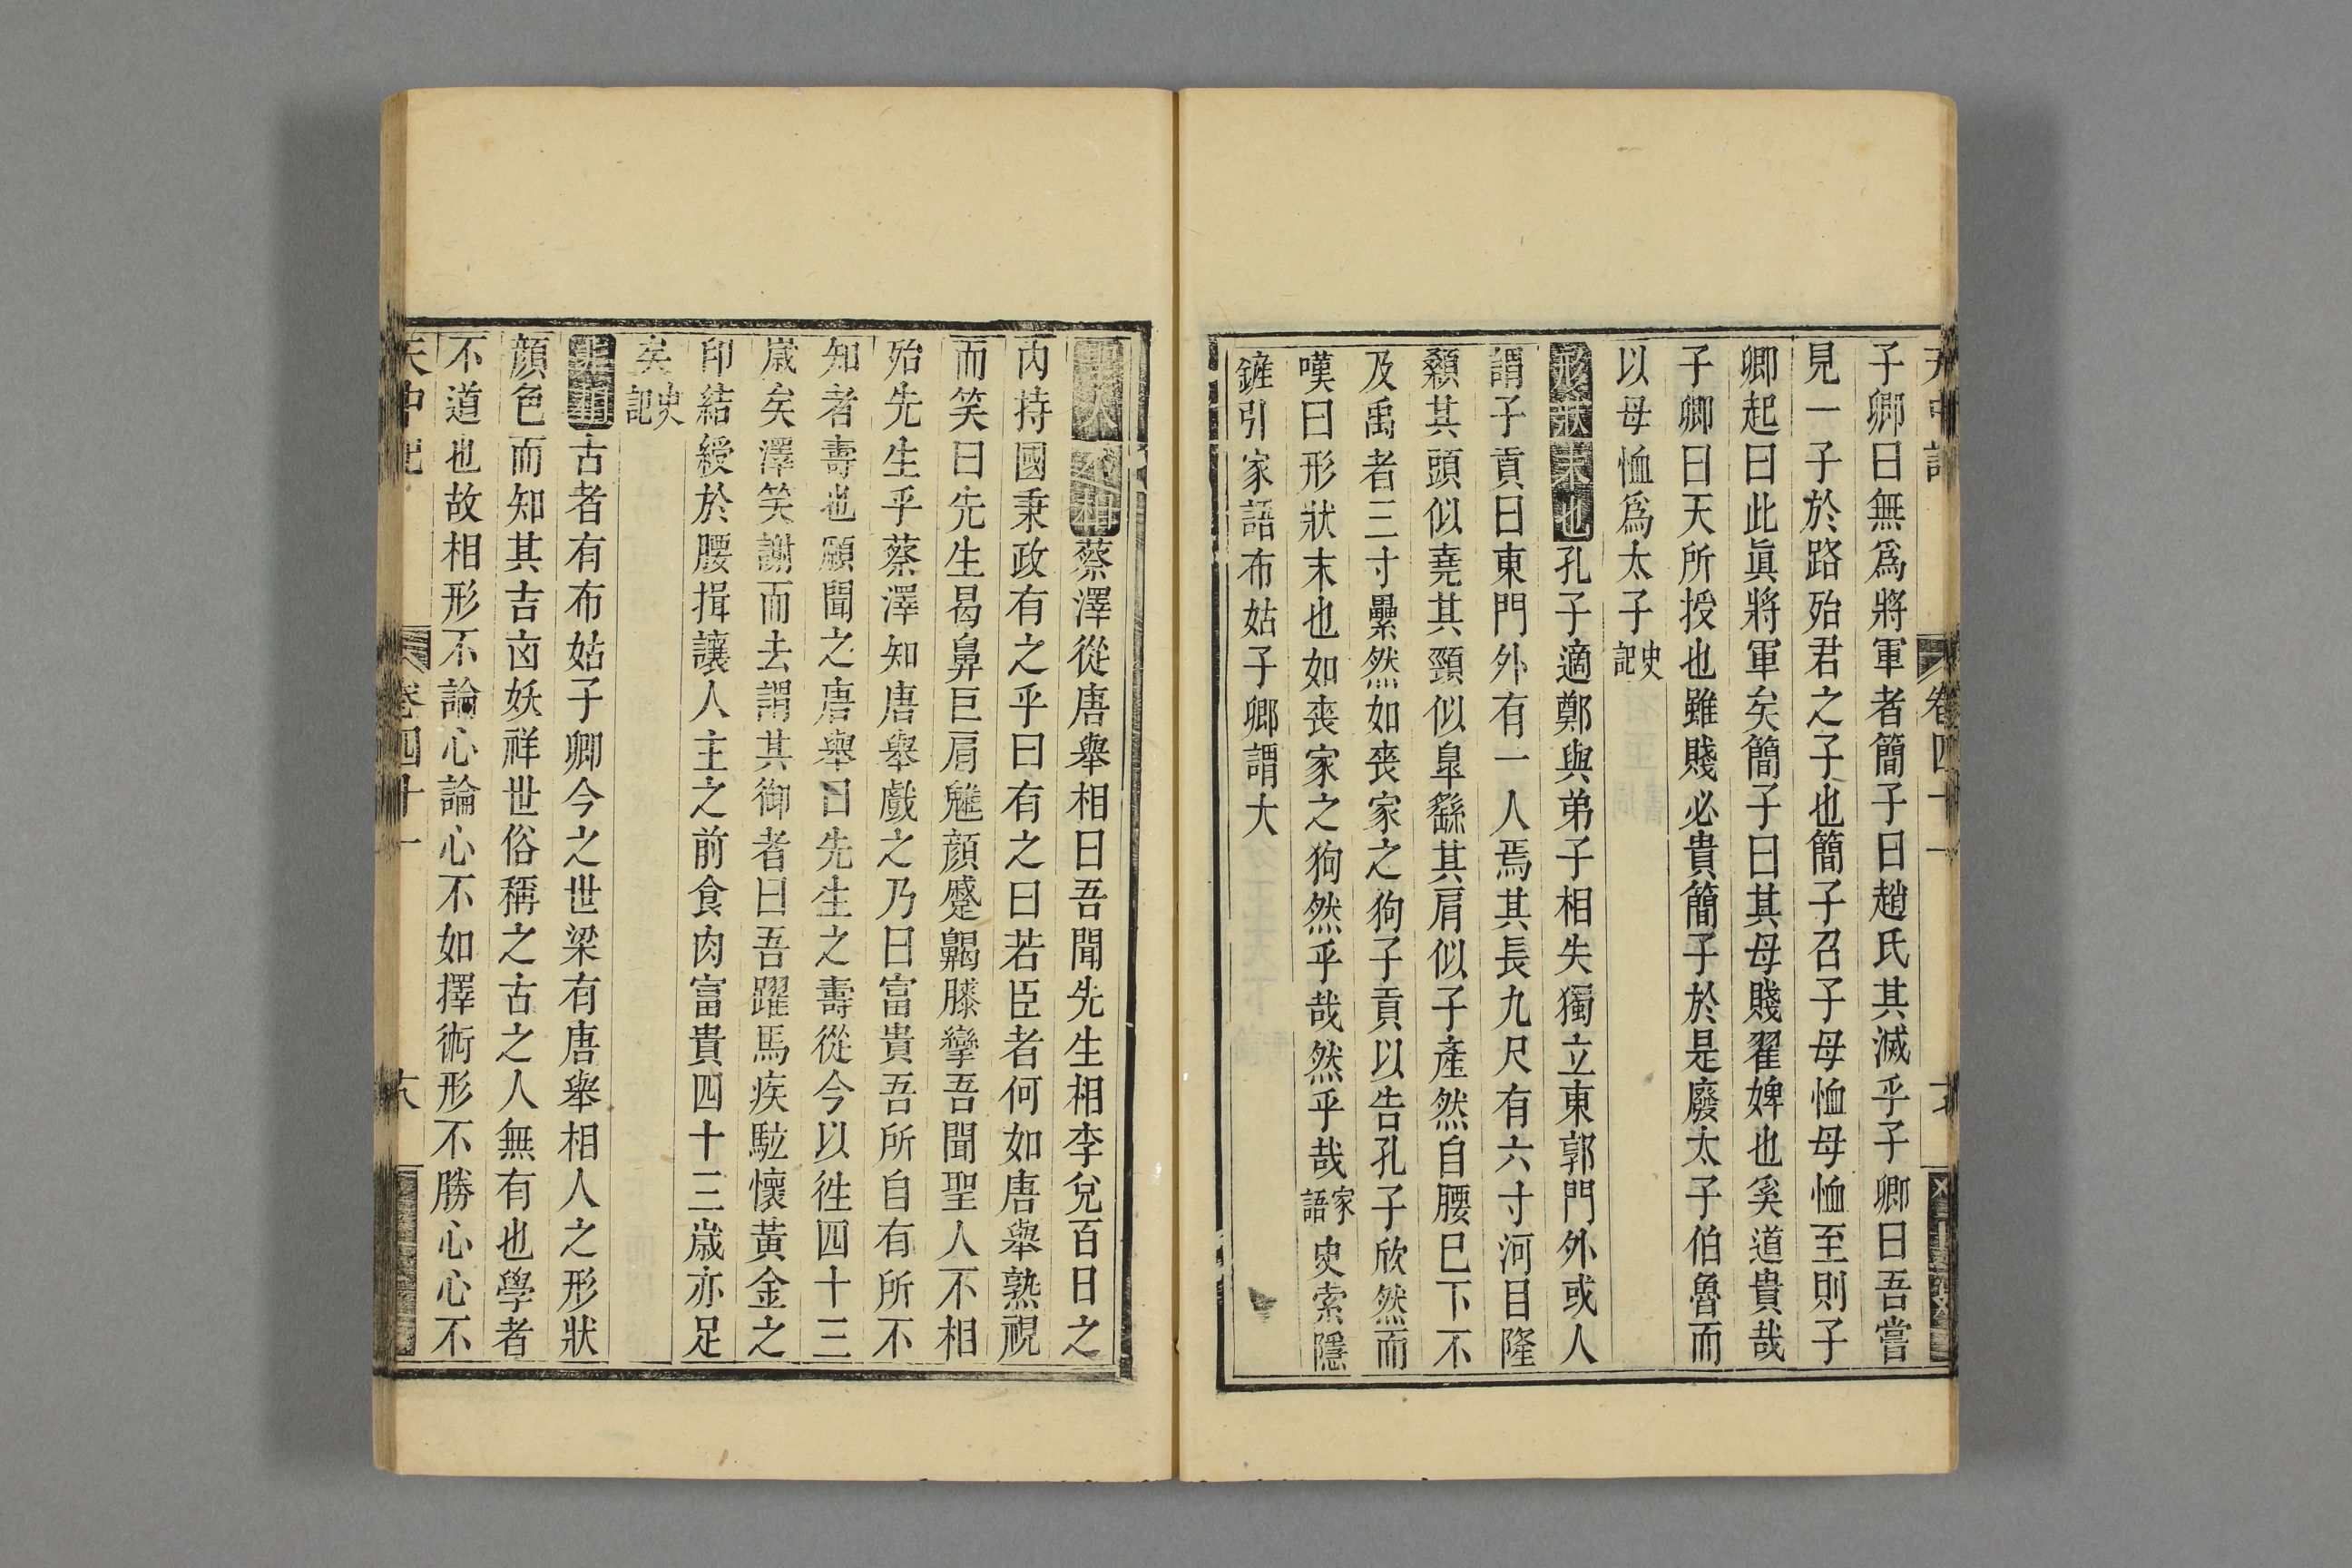 天中記
卷四十一
子卿曰無爲將軍者簡子曰趙氏其滅乎子卿曰吾嘗
見一子於路殆君之子也簡子召子母恤母恤至則子
卿起曰此眞將軍矣簡子曰其母賤翟婢也奚道貴哉
子卿曰天所授也雖賤必貴簡子於是廢太子伯魯而
以母恤爲太子史記
形狀末也孔子適鄭與弟子相失獨立東郭門外或人
謂子貢曰東門外有一人焉其長九尺有六寸河目隆
顙其頭似堯其頸似臯繇其肩似子產然自腰已下不
及禹者三寸纍然如喪家之狗子貢以告孔子欣然而
嘆曰形狀末也如喪家之狗然乎哉然乎哉家語史索隱
鏟引家語布姑子卿謂大
聖人不相蔡澤從唐舉相曰吾聞先生相李兌百日之
內持國秉政有之乎曰有之曰若臣者何如唐舉熟視
而笑曰先生曷鼻巨肩魋顏蹙齃膝攣吾聞聖人不相
殆先生乎蔡澤知唐舉戲之乃曰富貴吾所自有所不
知者壽也願聞之唐舉曰先生之壽從今以徃四十三
歲矣澤笑謝而去謂其御者曰吾躍馬疾駈懷黃金之
印結綬於腰揖讓人主之前食肉富貴四十三歲亦足
矣史記
非相古者有布姑子卿今之世梁有唐舉相人之形狀
顏色而知其吉㐫妖祥世俗稱之古之人無有也學者
不道也故相形不論心論心不如擇術形不勝心心不
天中記
卷四十一